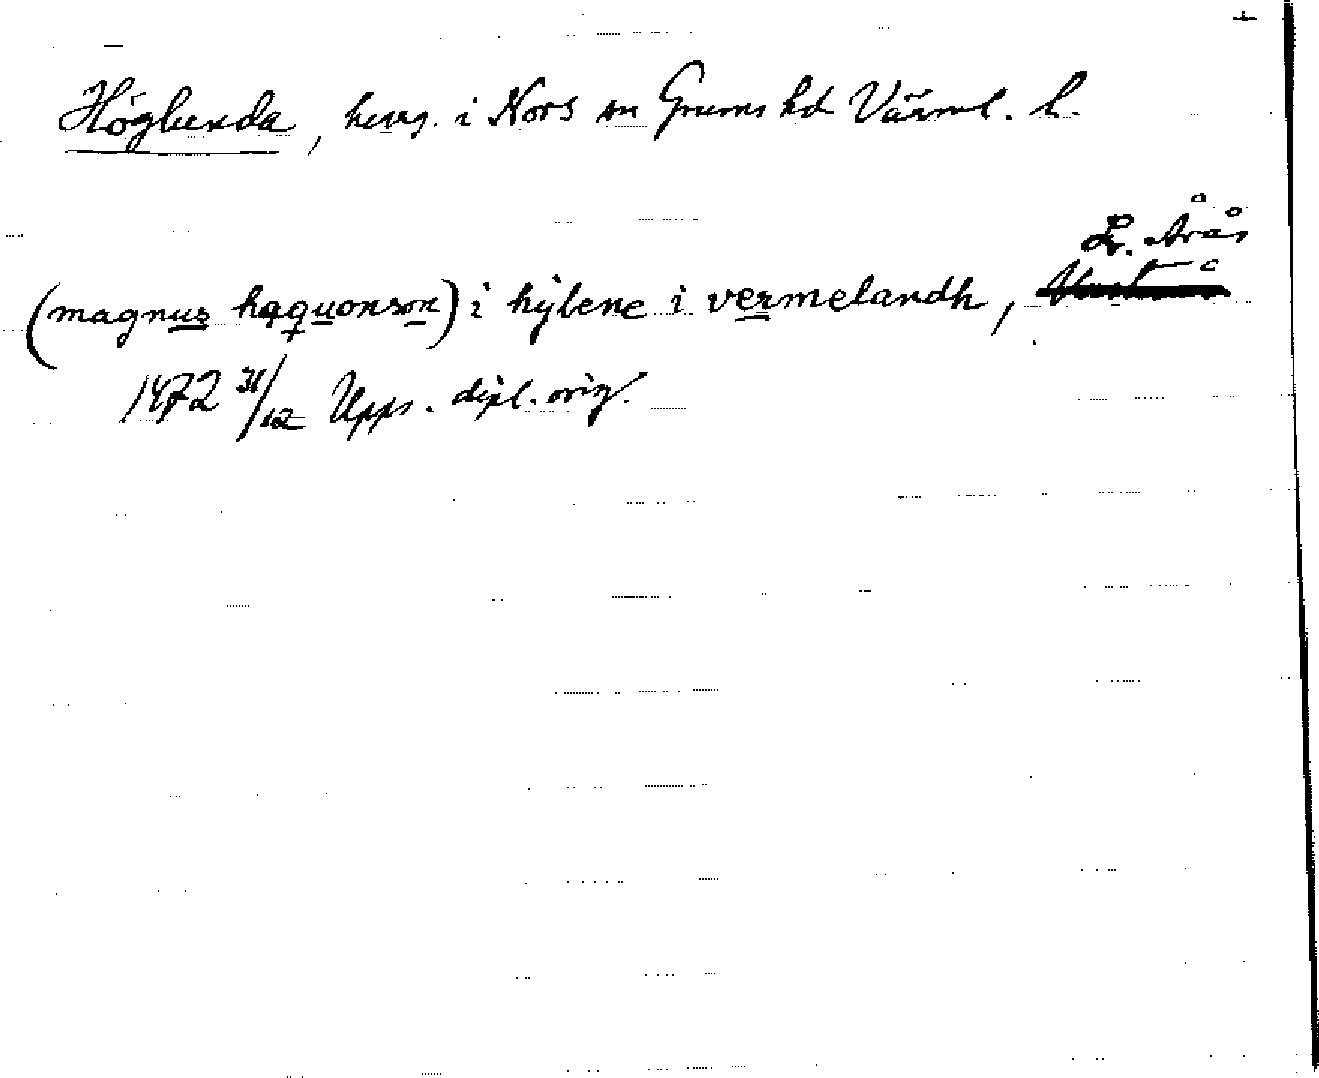 Höglunda, hmg. i Nors sn Grums hd Värml. l.
L. Årås
(magnus haquonson) i hýlene i vermelandh,
1472 31/12 Upps. dipl. orig.